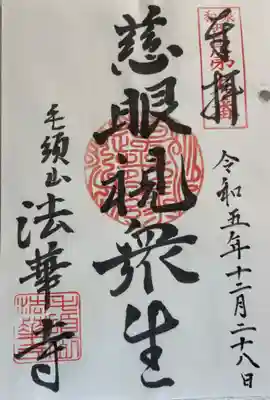 奉拝
令和五年十二月二十八日
慈眼視衆生
毛須山 法華寺